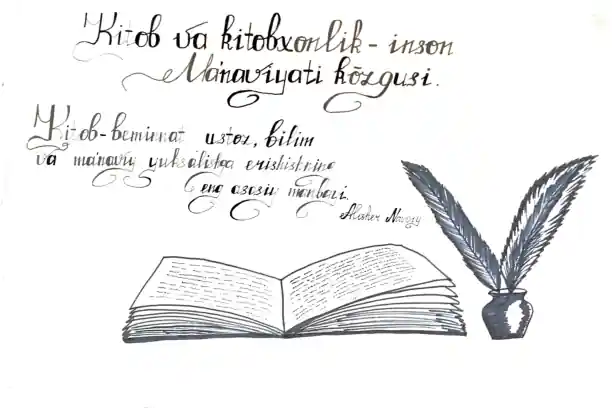 Kitob va kitobxonlik - inson
Ma'naviyati kõzgusi.
Kitob-beminnat ustoz, bilim
va ma'naviy yuksalishga erishishning
eng asosiy manbasi.
Alisher Navoiy